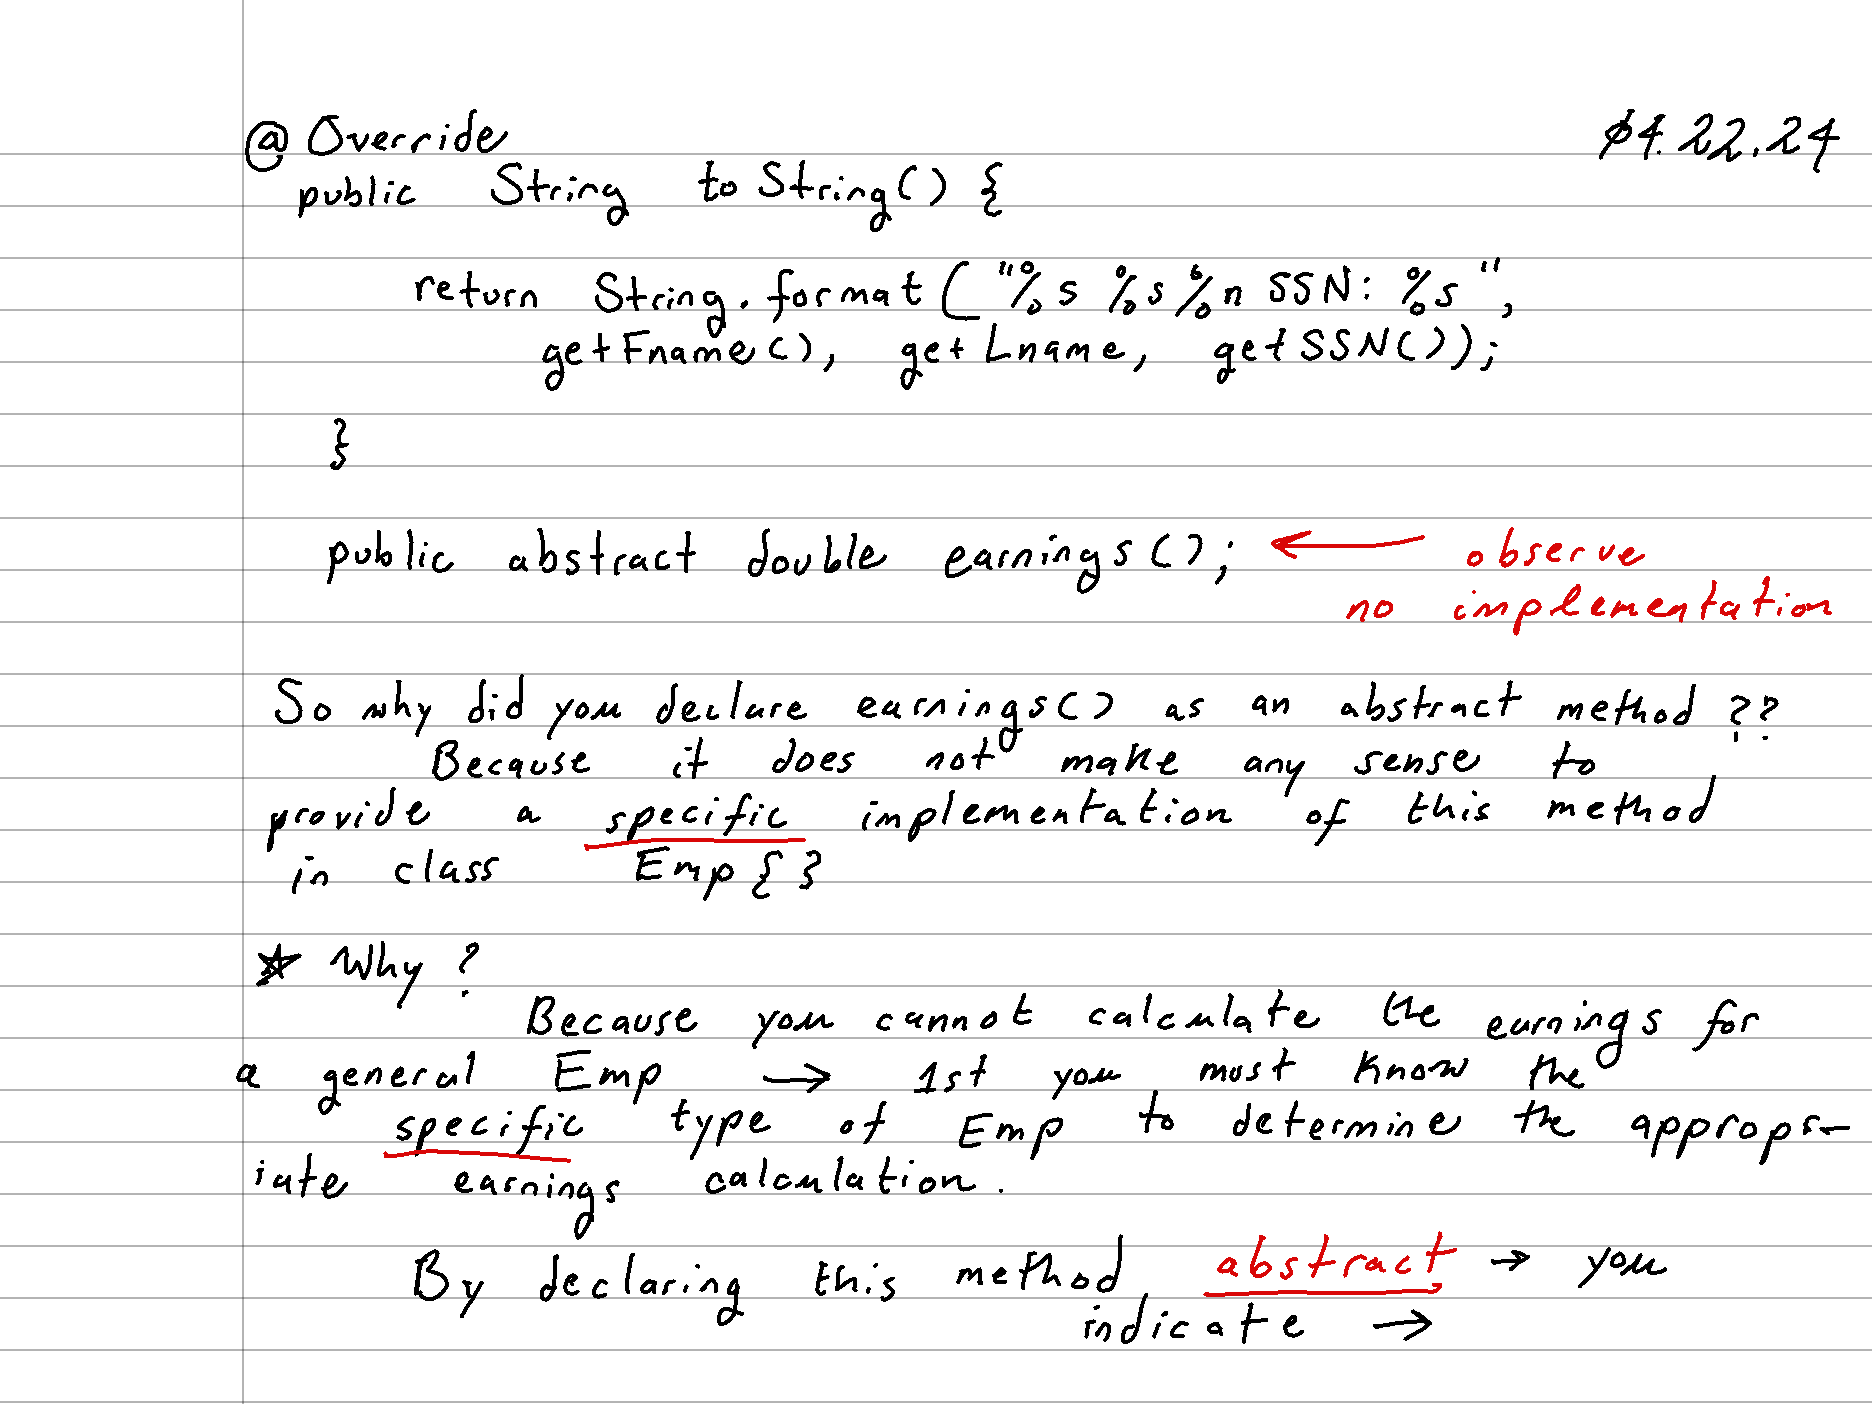 @Override 04.22.24
public String toString() {
return String.format("%s %s%n SSN: %s",
getFname(), getLname, getSSN());
}
public abstract double earnings(); ← observe
no implementation
So why did you declare earnings() as an abstract method ??
Because it does not make any sense to
provide a specific implementation of this method
in class Emp { }
★ Why ?
Because you cannot calculate the earnings for
a general Emp → 1st you must know the
specific type of Emp to determine the approps-
iate earnings calculation.
By declaring this method abstract → you
indicate →